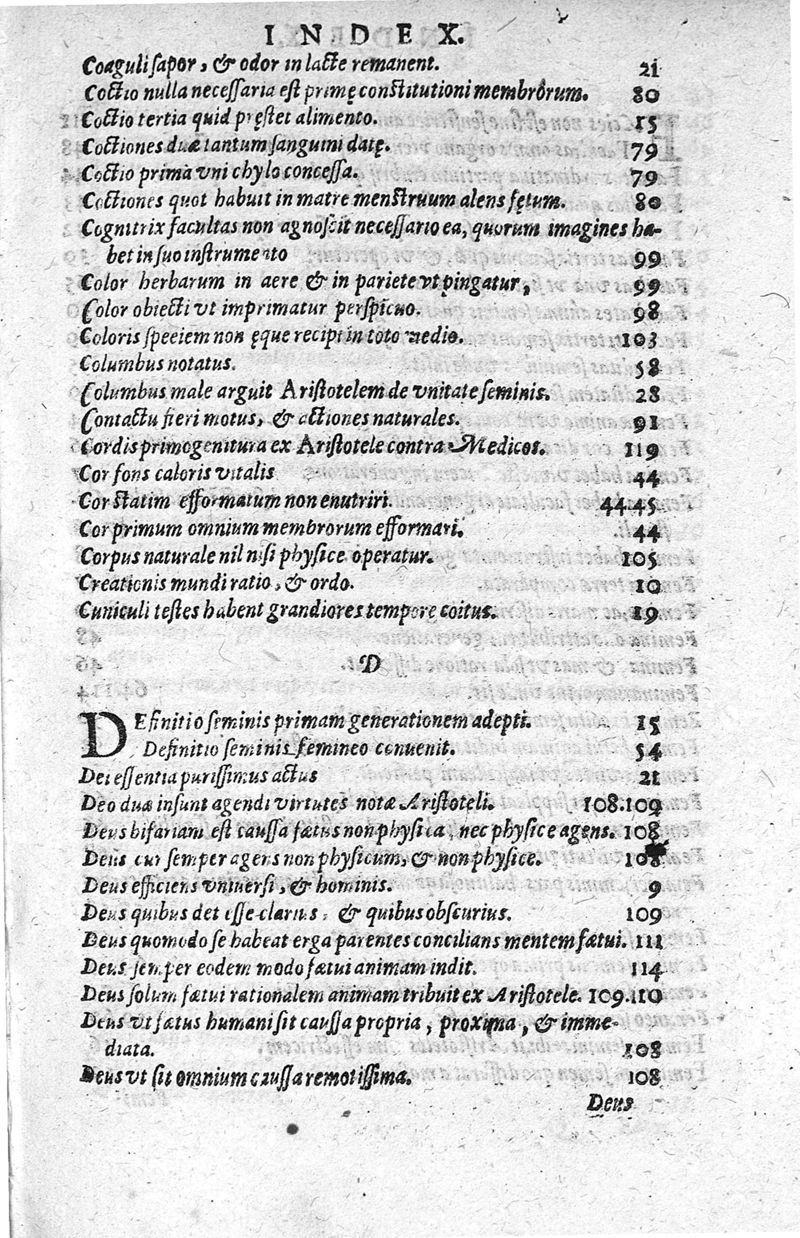 INDEX.
Coaguli sapor, & odor in lacte remanent. 21
Coctio nulla necessaria est primę constitutioni membrorum. 80
Coctio tertia quid pręstet alimento. 15
Coctiones duæ tantum sanguini datę. 79
Coctio prima vni chylo concessa. 79
Coctiones quot habuit in matre menstruum alens fętum. 80
Cognitrix facultas non agnoscit necessario ea, quorum imagines ha-
bet in suo instrumento 99
Color herbarum in aere & in pariete vt pingatur, 99
Color obiecti vt imprimatur perspicuo. 98
Coloris speeiem non ęque recipi in toto medio. 103
Columbus notatus. 58
Columbus male arguit Aristotelem de vnitate seminis. 28
Contactu fieri motus, & actiones naturales. 91
Cordis primogenitura ex Aristotele contra Medicos. 119
Cor fons caloris vitalis 44
Cor statim efformatum non enutriri. 44.45
Cor primum omnium membrorum efformari. 44
Corpus naturale nil nisi physice operatur. 105
Creationis mundi ratio, & ordo. 10
Cuniculi testes habent grandiores tempore coitus. 19
D
DEfinitio seminis primam generationem adepti. 15
Definitio seminis femineo conuenit. 54
Dei essentia purissimus actus 21
Deo duæ insunt agendi virtutes notæ Aristoteli. 108.109
Deus bifariam est caussa fætus non physica, nec physice agens. 108
Deus cur semper agens non physicum, & non physice. 108
Deus efficiens vniuersi, & hominis. 9
Deus quibus det esse clarius, & quibus obscurius. 109
Deus quomodo se habeat erga parentes concilians mentem fætui. 111
Deus semper eodem modo fætui animam indit. 114
Deus solum fætui rationalem animam tribuit ex Aristotele. 109.110
Deus vt fætus humani sit caussa propria, proxima, & imme-
diata. 108
Deus vt sit omnium caussa remotissima. 108
Deus